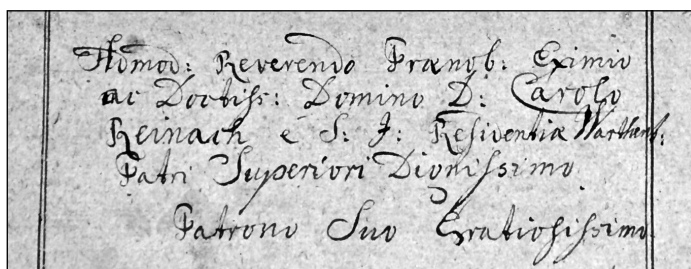 Admod: Reverendo Prænob: Eximio
ac Doctiss: Domino D: Carolo
Reinach è S: J: Residentiæ Warthens:
Patri Superiori Dignissimo
Patrono Suo Gratiosissimo